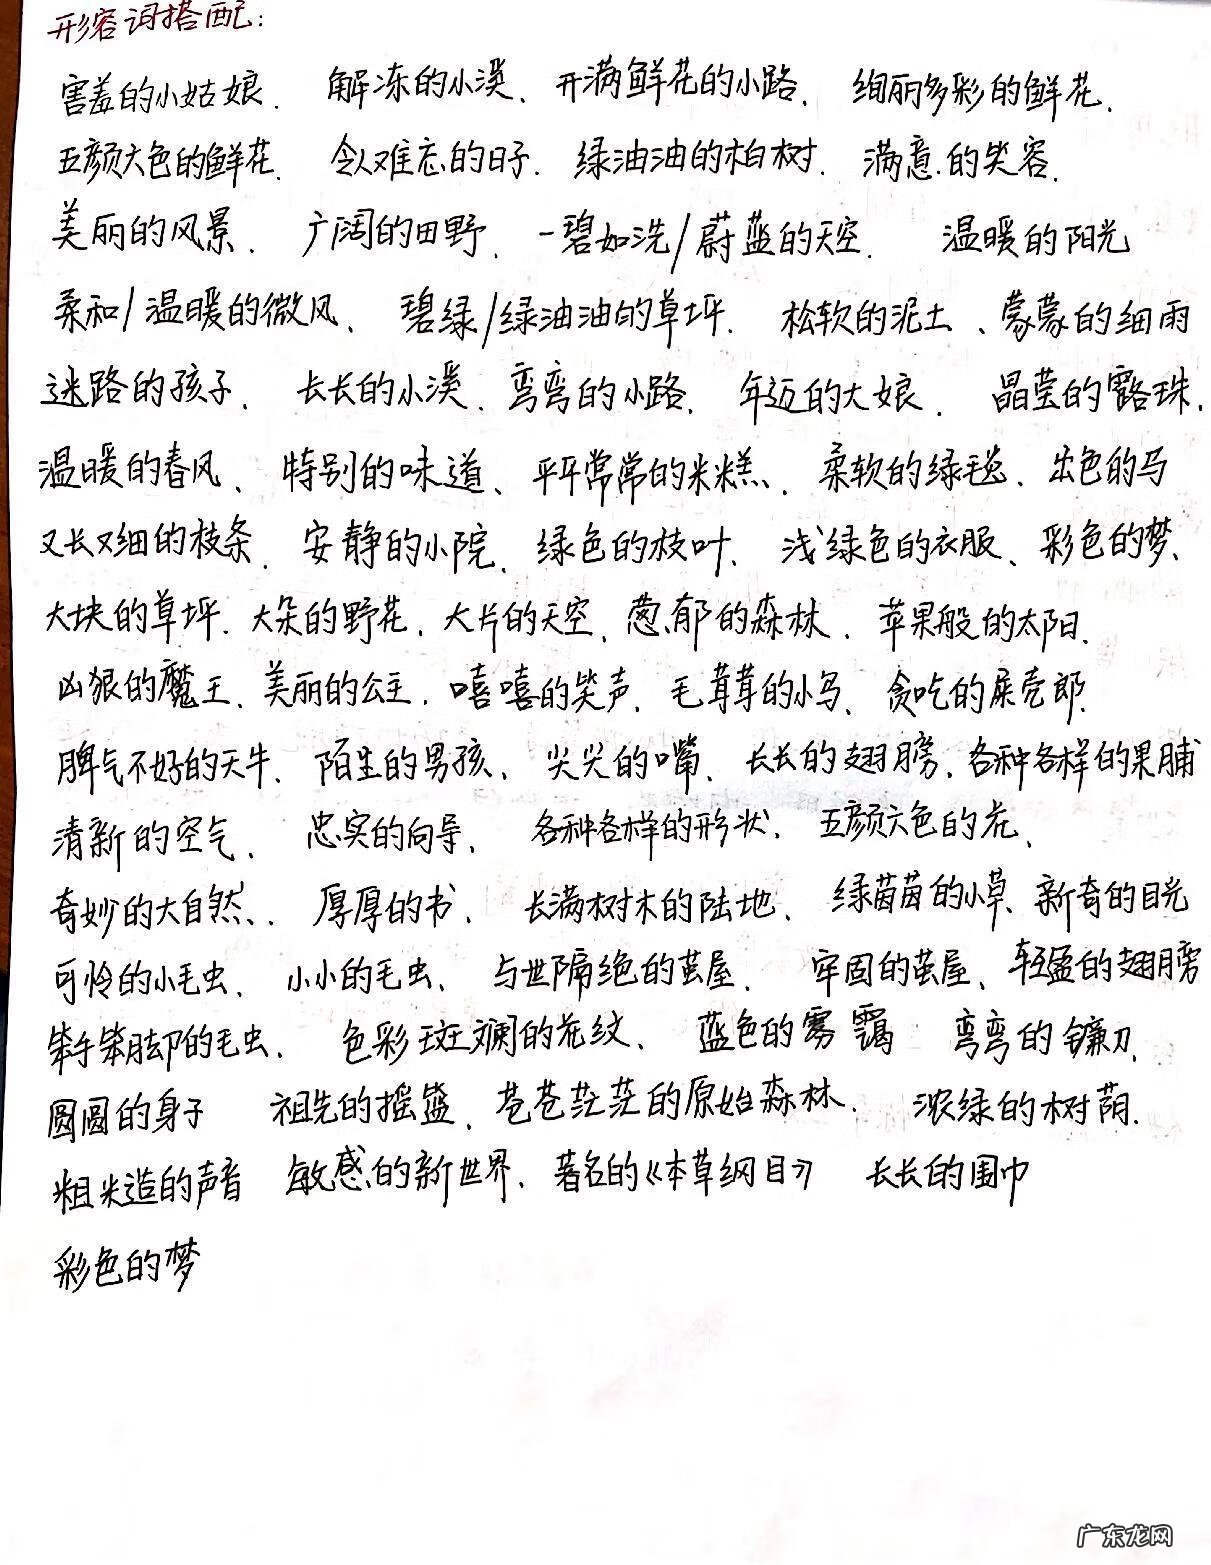 形容词搭配:
害羞的小姑娘. 解冻的小溪、开满鲜花的小路、绚丽多彩的鲜花.
五颜六色的鲜花. 令人难忘的日子. 绿油油的柏树. 满意的笑容.
美丽的风景、广阔的田野、一碧如洗/蔚蓝的天空. 温暖的阳光
柔和/温暖的微风、碧绿/绿油油的草坪. 松软的泥土、蒙蒙的细雨
迷路的孩子、长长的小溪、弯弯的小路. 年迈的大娘. 晶莹的露珠.
温暖的春风、特别的味道、平平常常的米糕、柔软的绿毯、出色的马
又长又细的枝条、安静的小院、绿色的枝叶、浅绿色的衣服、彩色的梦、
大块的草坪. 大朵的野花. 大片的天空、葱郁的森林. 苹果般的太阳.
凶狠的魔王、美丽的公主. 嘻嘻的笑声、毛茸茸的小鸟、贪吃的屎壳郎.
脾气不好的天牛. 陌生的男孩、尖尖的嘴、长长的翅膀、各种各样的果脯
清新的空气、忠实的向导、各种各样的形状. 五颜六色的花、
奇妙的大自然、厚厚的书、长满树木的陆地、绿茵茵的小草、新奇的目光
可怜的小毛虫、小小的毛虫、与世隔绝的茧屋、牢固的茧屋、轻盈的翅膀
笨手笨脚的毛虫、色彩斑斓的花纹、蓝色的雾霭 弯弯的镰刀.
圆圆的身子 祖先的摇篮、苍苍茫茫的原始森林. 浓绿的树荫.
粗糙的声音 敏感的新世界. 著名的《本草纲目》 长长的围巾
彩色的梦
广东龙网